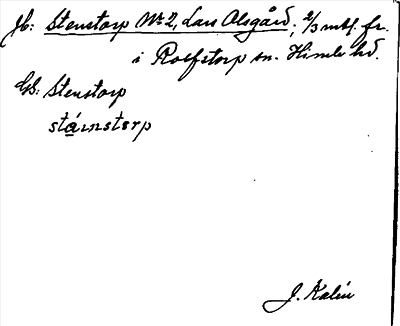 Jb: Stenstorp No 2, Lars Olsgård; 2/3 mtl. fr.
i Rolfstorp sn. Himle hd.
GS: Stenstorp
stáinstɵrp
J. Kalén